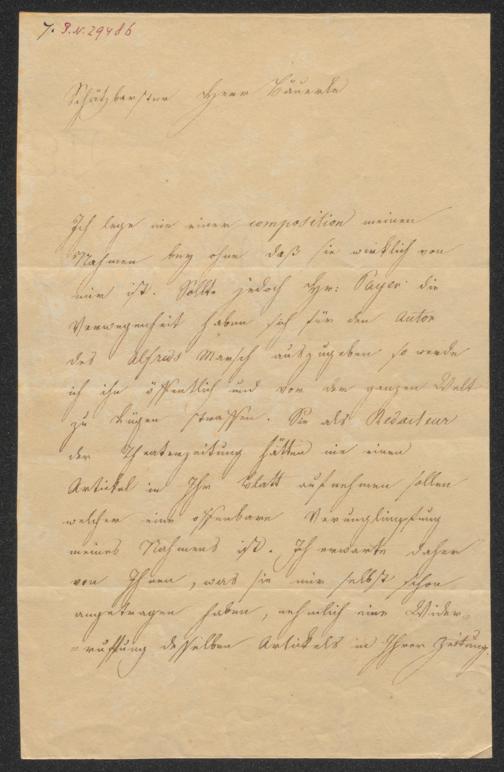 7. I.N. 29486
Schätzbarster Herr Bäuerle
Ich lege nie einer composition meinen
Nahmen bey ohne daß sie wirklich von
mir ist. Sollte jedoch Hr: Payer die
Verwegenheit haben sich für den Autor
des Alfreds Marsch auszugeben so werde
ich ihn öffentlich und vor der ganzen Welt
zu Lügen straffen. Sie als Redacteur
der Theaterzeitung hätten nie einen
Artikel in Ihr Blatt aufnehmen sollen
welcher eine offenbare Verunglimpfung
meines Nahmens ist. Ich erwarte daher
von Ihnen, was sie mir selbst schon
angetragen haben, nehmlich eine Wider-
=ruffung desselben Artikels in Ihrer Zeitung.